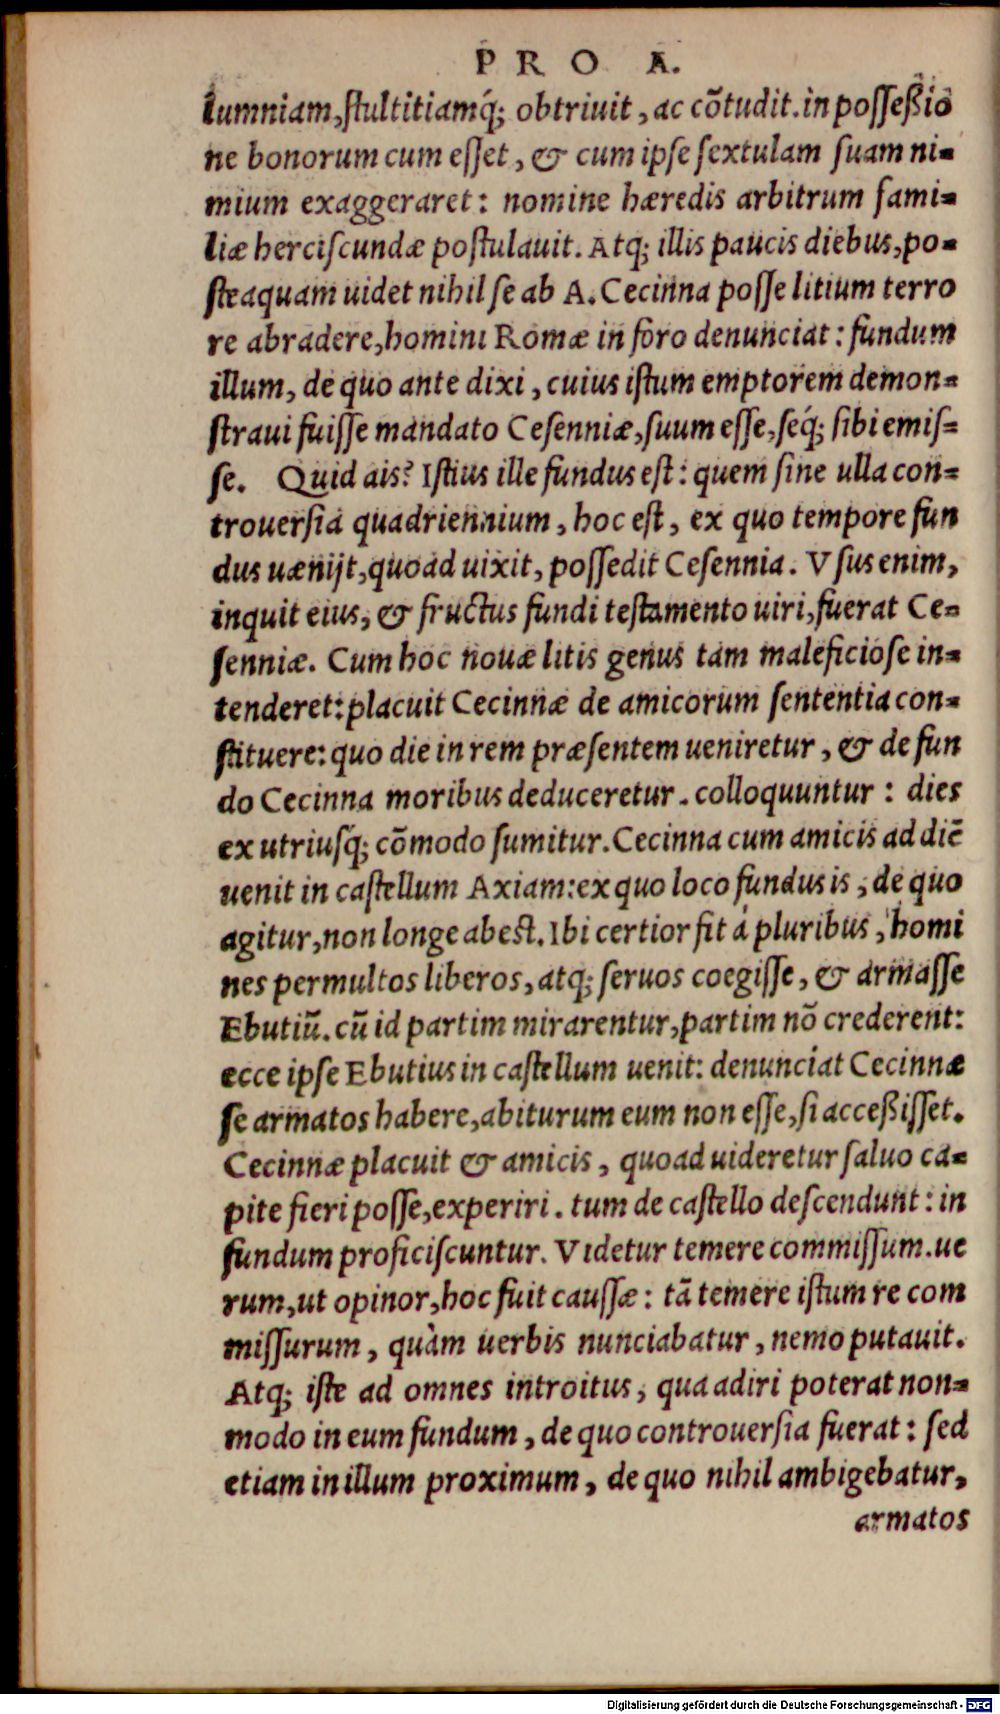 PRO A.
lumniam, ſtultitiamq́; obtriuit, ac cõtudit. in poſſeßio
ne bonorum cum eſſet, & cum ipſe ſextulam ſuam ni-
mium exaggeraret: nomine hæredis arbitrum fami-
liæ herciſcundæ poſtulauit. Atq; illis paucis diebus, po-
ſteaquam uidet nihil ſe ab A. Cecinna poſſe litium terro
re abradere, homini Romæ in foro denunciat: fundum
illum, de quo ante dixi, cuius iſtum emptorem demon-
ſtraui fuiſſe mandato Ceſenniæ, ſuum eſſe, ſeq́; ſibi emiſ-
ſe. Quid ais? Iſtius ille fundus eſt: quem ſine ulla con-
trouerſia quadriennium, hoc eſt, ex quo tempore fun
dus uænijt, quoad uixit, poſſedit Ceſennia. Vſus enim,
inquit eius, & fructus fundi teſtamento uiri, fuerat Ce-
ſenniæ. Cum hoc nouæ litis genus tam maleficioſe in-
tenderet: placuit Cecinnæ de amicorum ſententia con-
ſtituere: quo die in rem præſentem ueniretur, & de fun
do Cecinna moribus deduceretur. colloquuntur: dies
ex utriuſq́; cõmodo ſumitur. Cecinna cum amicis ad diẽ
uenit in caſtellum Axiam: ex quo loco fundus is, de quo
agitur, non longe abeſt. Ibi certior fit á pluribus, homi
nes permultos liberos, atq; ſeruos coegiſſe, & armaſſe
Ebutiũ. cũ id partim mirarentur, partim nõ crederent:
ecce ipſe Ebutius in caſtellum uenit: denunciat Cecinnæ
ſe armatos habere, abiturum eum non eſſe, ſi acceßiſſet.
Cecinnæ placuit & amicis, quoad uideretur ſaluo ca-
pite fieri poſſe, experiri. tum de caſtello deſcendunt: in
fundum proficiſcuntur. Videtur temere commiſſum. ue
rum, ut opinor, hoc fuit cauſſæ: tã temere iſtum re com
miſſurum, quàm uerbis nunciabatur, nemo putauit.
Atq; iſte ad omnes introitus, qua adiri poterat non-
modo in eum fundum, de quo controuerſia fuerat: ſed
etiam in illum proximum, de quo nihil ambigebatur,
armatos
Digitalisierung gefördert durch die Deutsche Forschungsgemeinschaft - DFG